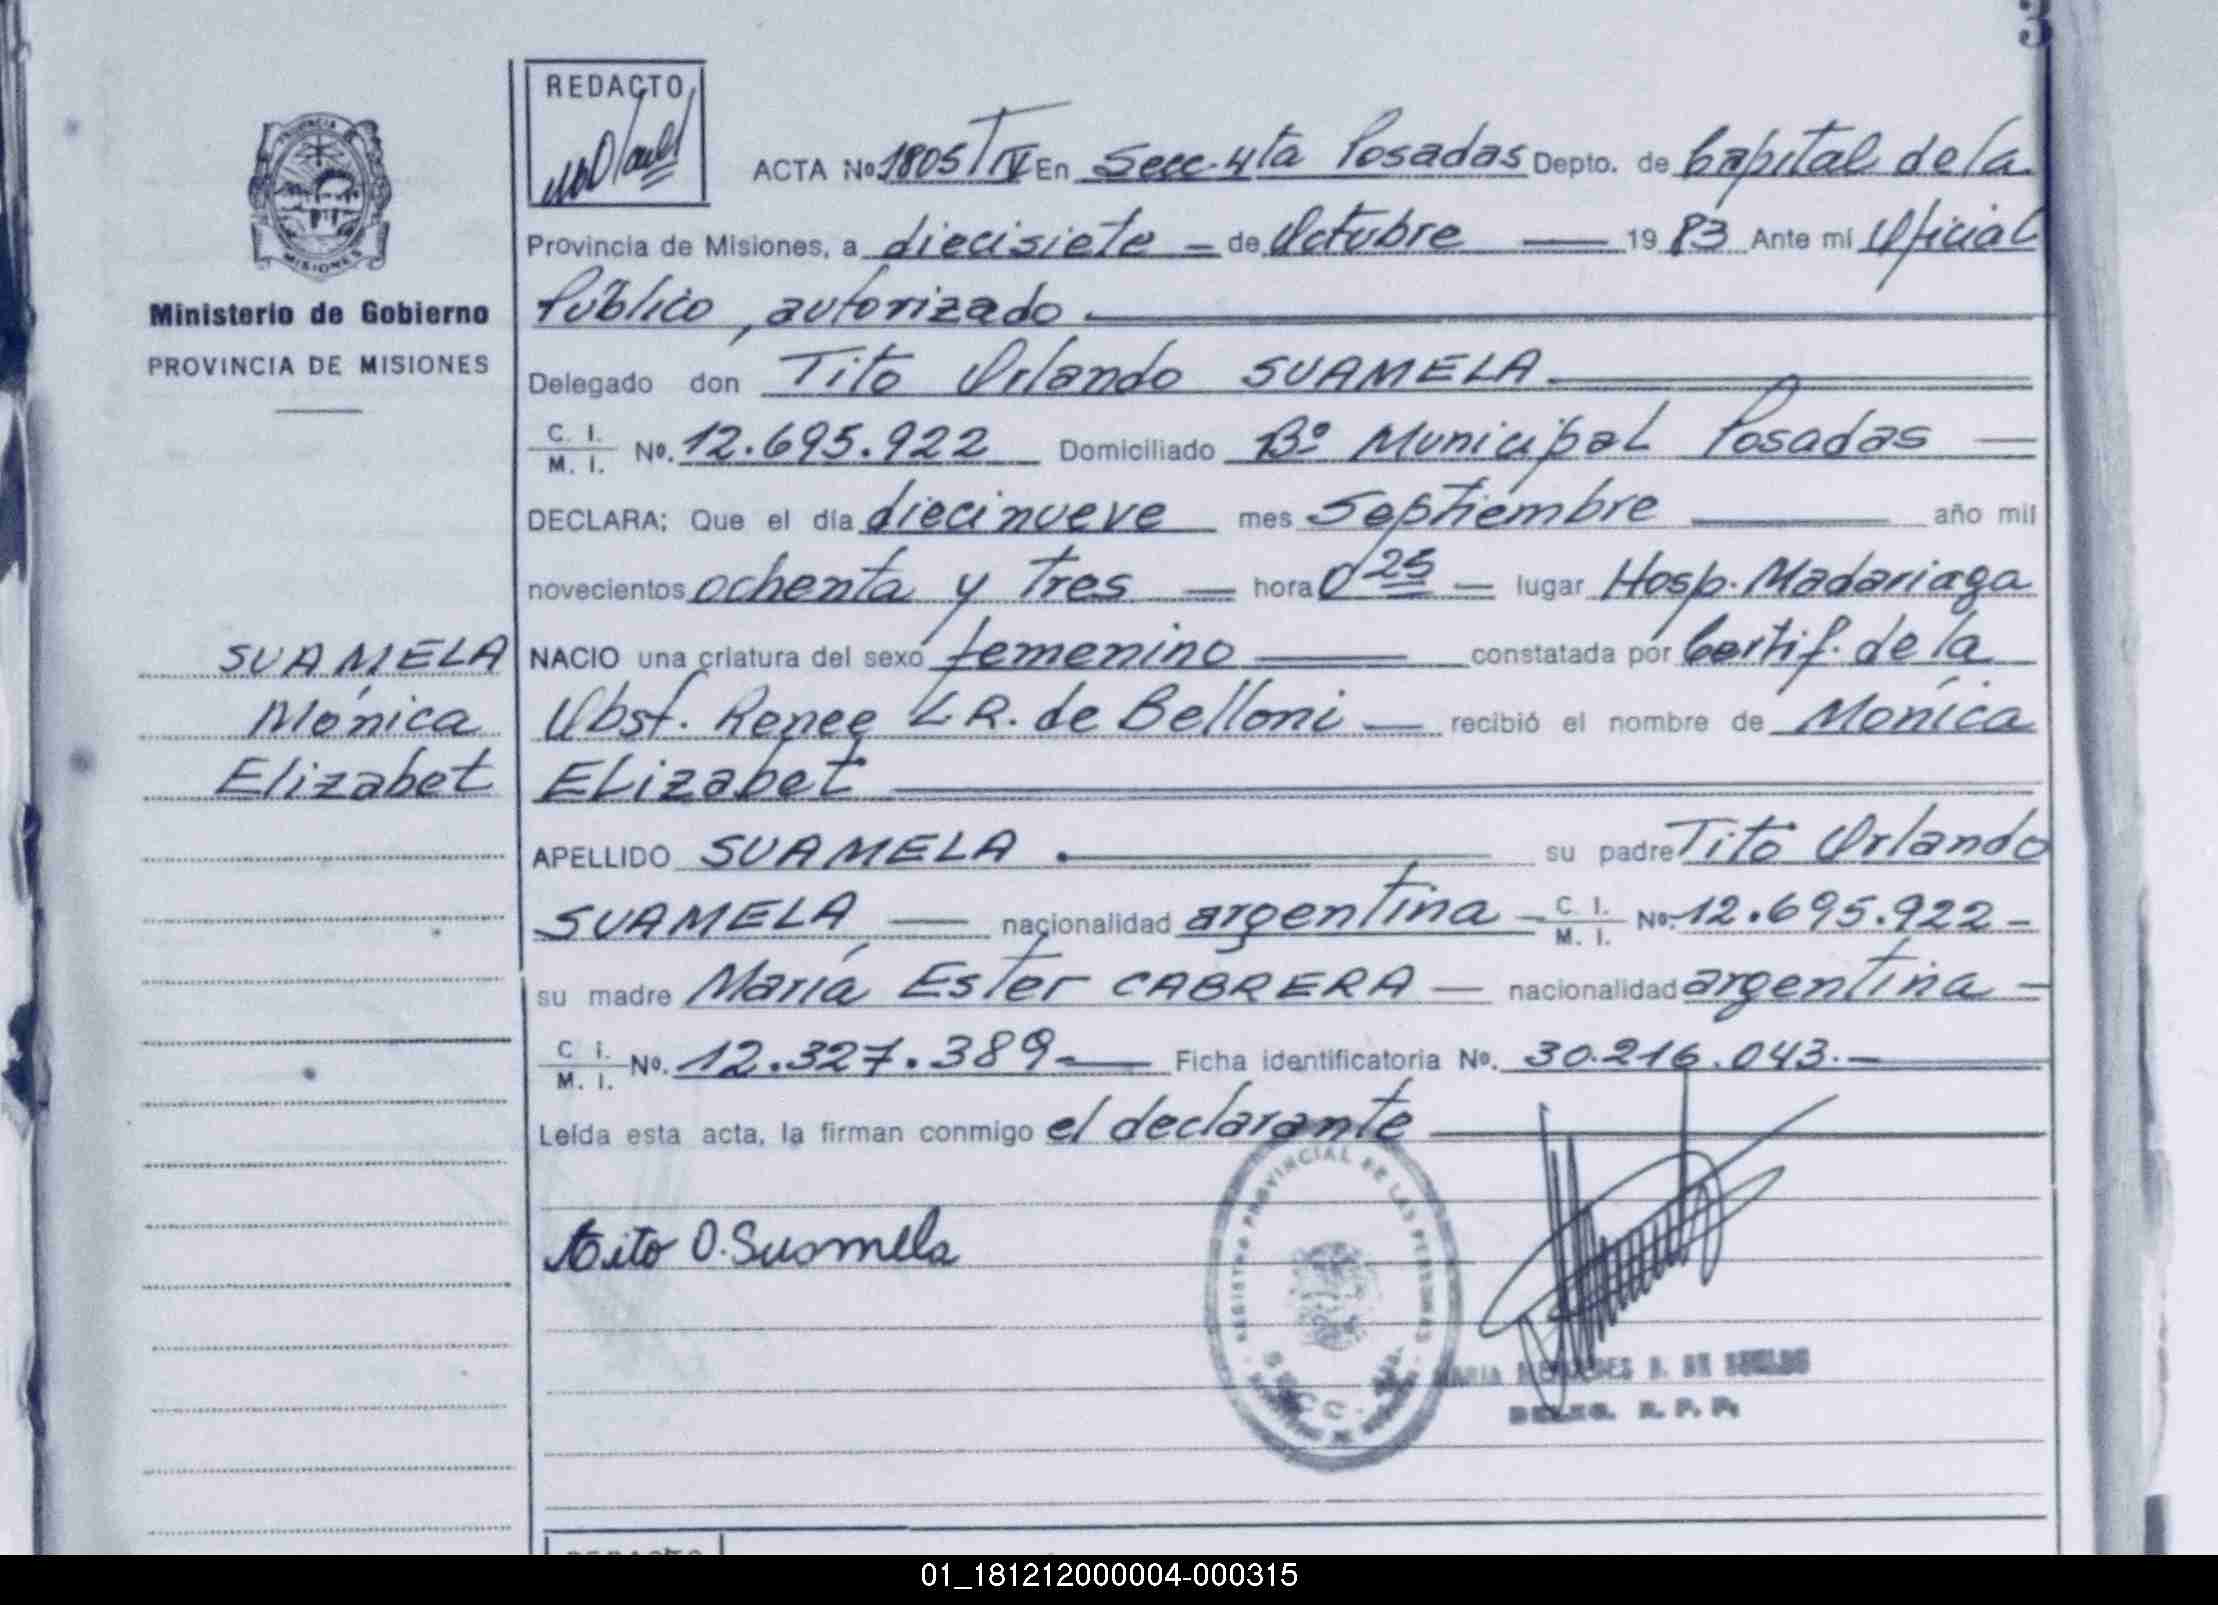 3
REDACTO
ACTA No 1805 T IV En Secc. 4ta Posadas Depto. de Capital de la
Provincia de Misiones, a diecisiete de Octubre 19 83 Ante mí Oficial
Público, autorizado
Delegado don Tito Orlando SUAMELA
C. I. / M. I. No. 12.695.922 Domiciliado Bº Municipal Posadas
DECLARA; Que el día diecinueve mes Septiembre año mil
novecientos ochenta y tres hora 0 25 lugar Hosp. Madariaga
NACIO una criatura del sexo femenino constatada por Certif. de la
Obst. Renee L R. de Belloni recibió el nombre de Mónica
ELizabet
APELLIDO SUAMELA su padre Tito Orlando
SUAMELA nacionalidad argentina C. I. / M. I. No. 12.695.922
su madre María Ester CABRERA nacionalidad argentina
C. I. / M. I. No. 12.327.389 Ficha identificatoria No. 30.216.043.
Leída esta acta, la firman conmigo el declarante
Tito O. Suamela
REGISTRO PROVINCIAL DE LAS PERSONAS
SECC.
MARIA DE
DELEG. R. P. P.
PROVINCIA DE
MISIONES
Ministerio de Gobierno
PROVINCIA DE MISIONES
SUAMELA
Mónica
Elizabet
REDACTO
01_181212000004-000315